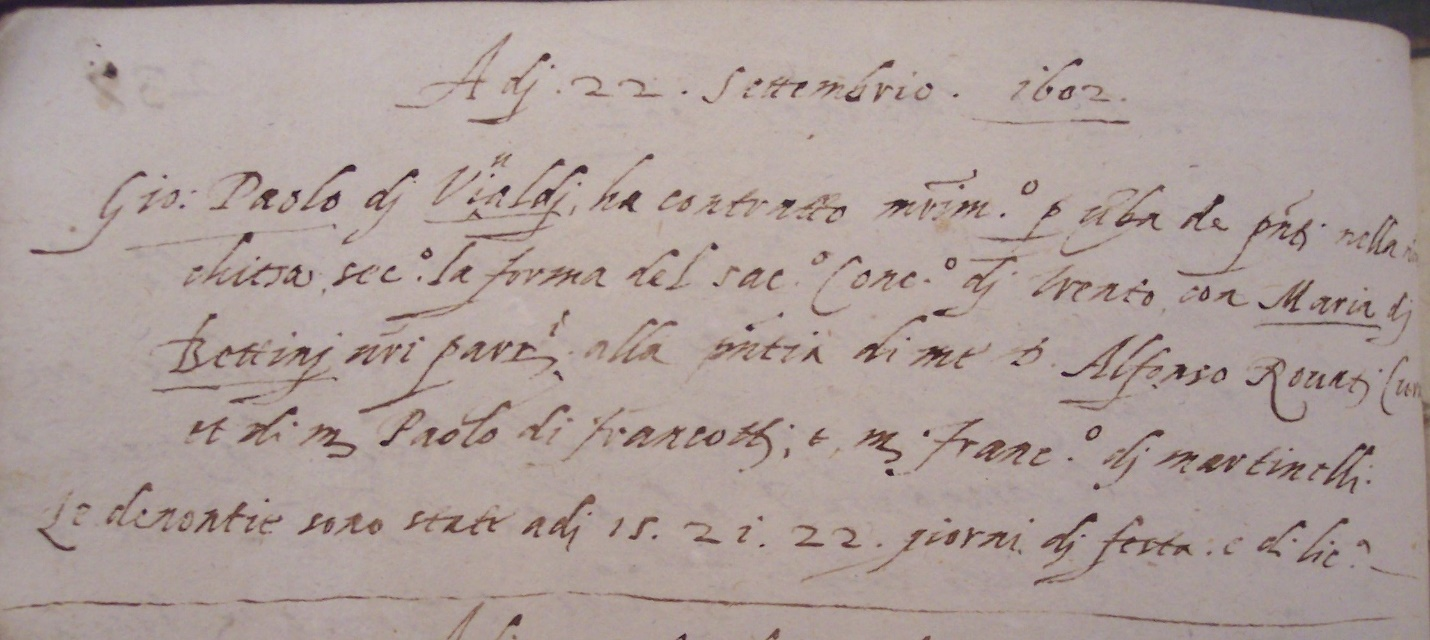 Adj. 22. Settembrio. 1602.
Gio: Paolo dj Vialdj, ha contratto mrim.º p u̅ba de pn̅ti nella
chiesa, sec.º la forma del sac.º Conc.º dj trento, con Maria dj
Bettinj nr̅i par. alla pn̅tia di me D. Alfonso Rouatj
et di m Paolo di francottj, e, m. franc.º dj martinelli.
Le denontie sono state adj 15. 21. 22. giorni dj festa. e di lic.ª